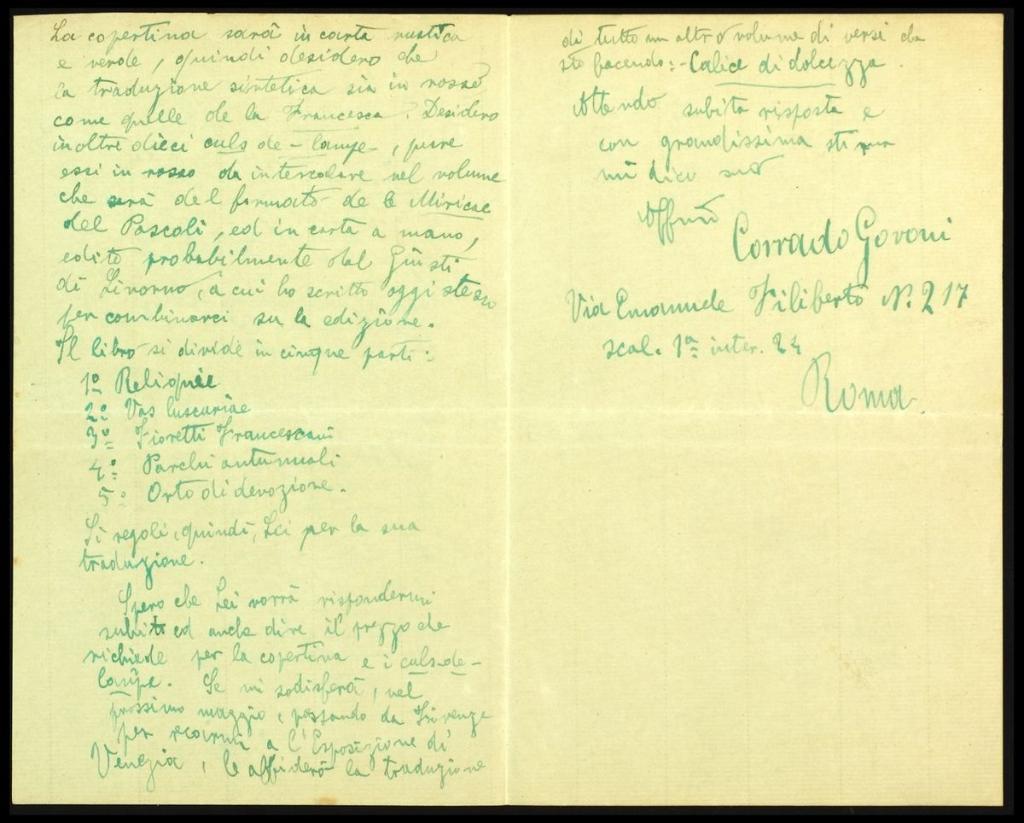 La copertina sarà in carta rustica
e verde, quindi desidero che
la traduzione sintetica sia in rosso
come quelle de la Francesca. Desidero
inoltre dieci culs de-lampe-, pure
essi in rosso da intercalare nel volume
che sarà del formato de le Miricae
del Pascoli, ed in carta a mano,
edito probabilmente dal Giusti
di Livorno, a cui ho scritto oggi stesso
per combinarci su la edizione.
Il libro si divide in cinque parti:
1º Reliquie
2º Vas luscariae
3º Fioretti Francescani
4º Parchi autunnali
5º Orto di devozione.
Si regoli, quindi, Lei per la sua
traduzione.
Spero che Lei vorrà rispondermi
subito ed anche dire il prezzo che
richiede per la copertina e i culs-de-
lampe. Se mi sodisferà, nel
prossimo maggio, passando da Firenze
per recarmi a l'Esposizione di
Venezia, le affiderò la traduzione
di tutto un altro volume di versi che
sto facendo:- Calice di dolcezza.
Attendo subito risposta e
con grandissima stima
mi dico suo
Affmo
Corrado Govoni
Via Emanuele Filiberto N. 217
scal. 1ª inter. 24
Roma.